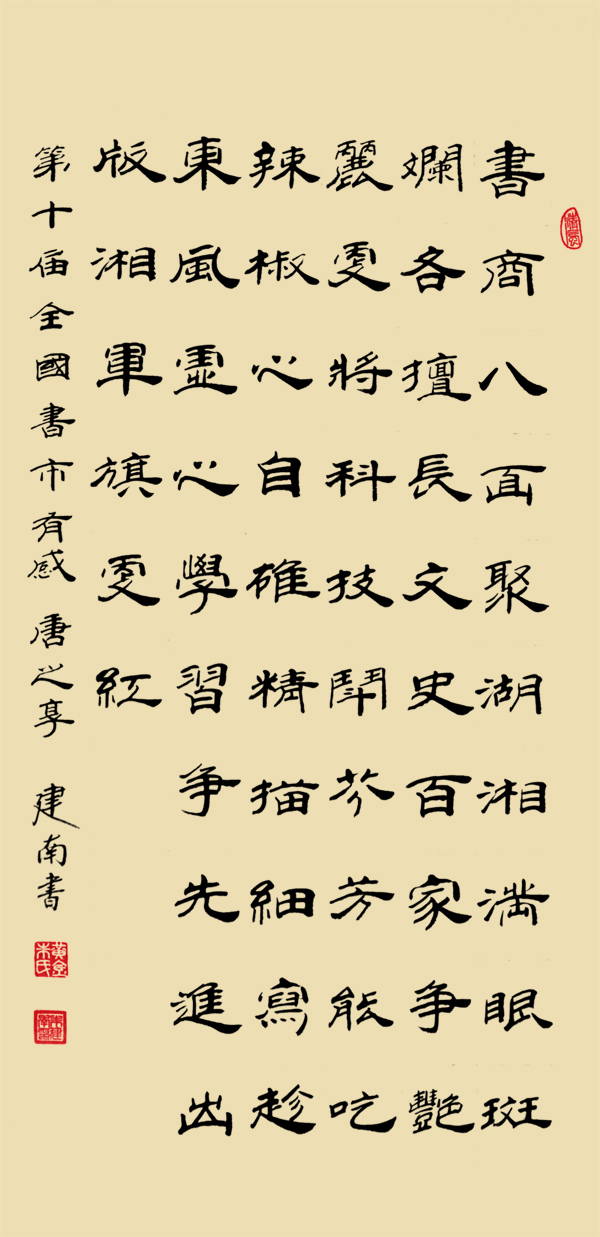 書商八面聚湖湘滿眼斑
斕各擅長文史百家争艷
麗更將科技鬥芬芳能吃
辣椒心自雄精描細寫趁
東風虛心學習争先進出
版湘軍旗更紅
第十届全國書市有感 唐之享 建南書